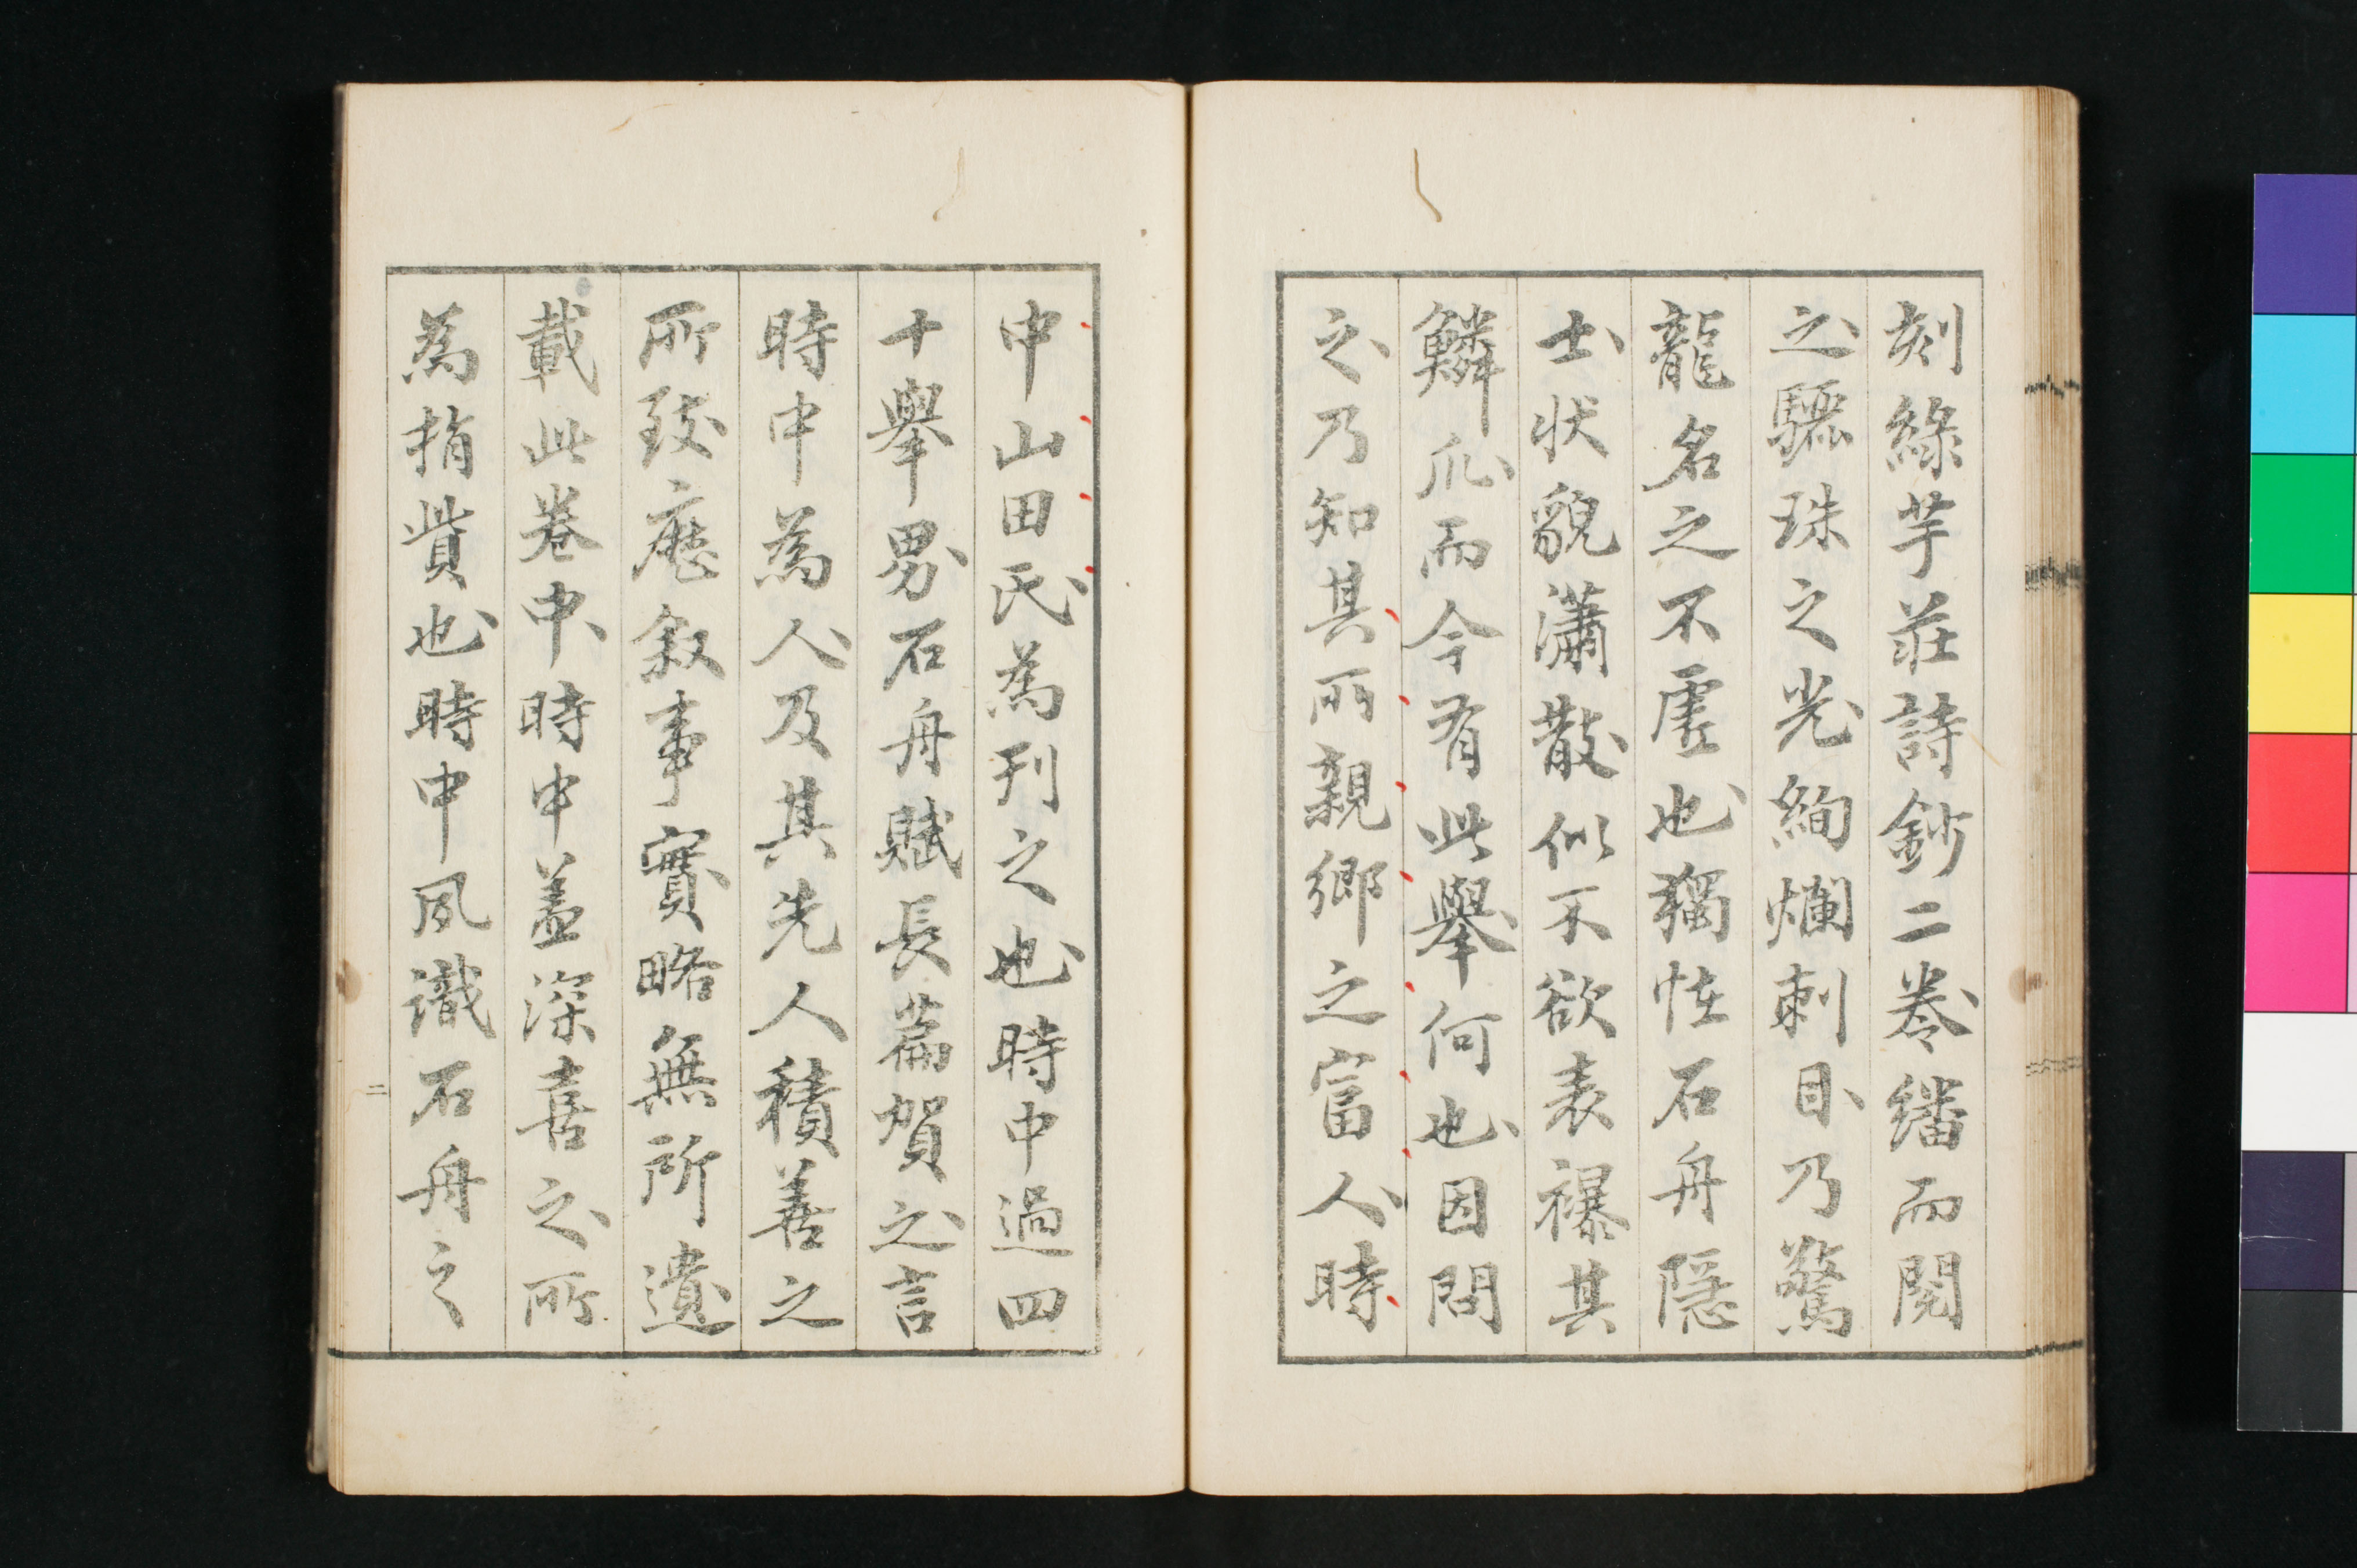 刻綠芋莊詩鈔二卷繙而閱
之驪珠之光絢爛刺目乃驚
龍名之不虛也獨怪石舟隱
士狀貌瀟散似不欲表襮其
鱗爪而今有此舉何也因問
之乃知其所親鄉之富人時
中山田氏為刊之也時中過四
十舉男石舟賦長篇賀之言
時中為人及其先人積善之
所致歷敘事實略無所遺
載此卷中時中蓋深喜之所
為捐貲也時中夙識石舟之
二